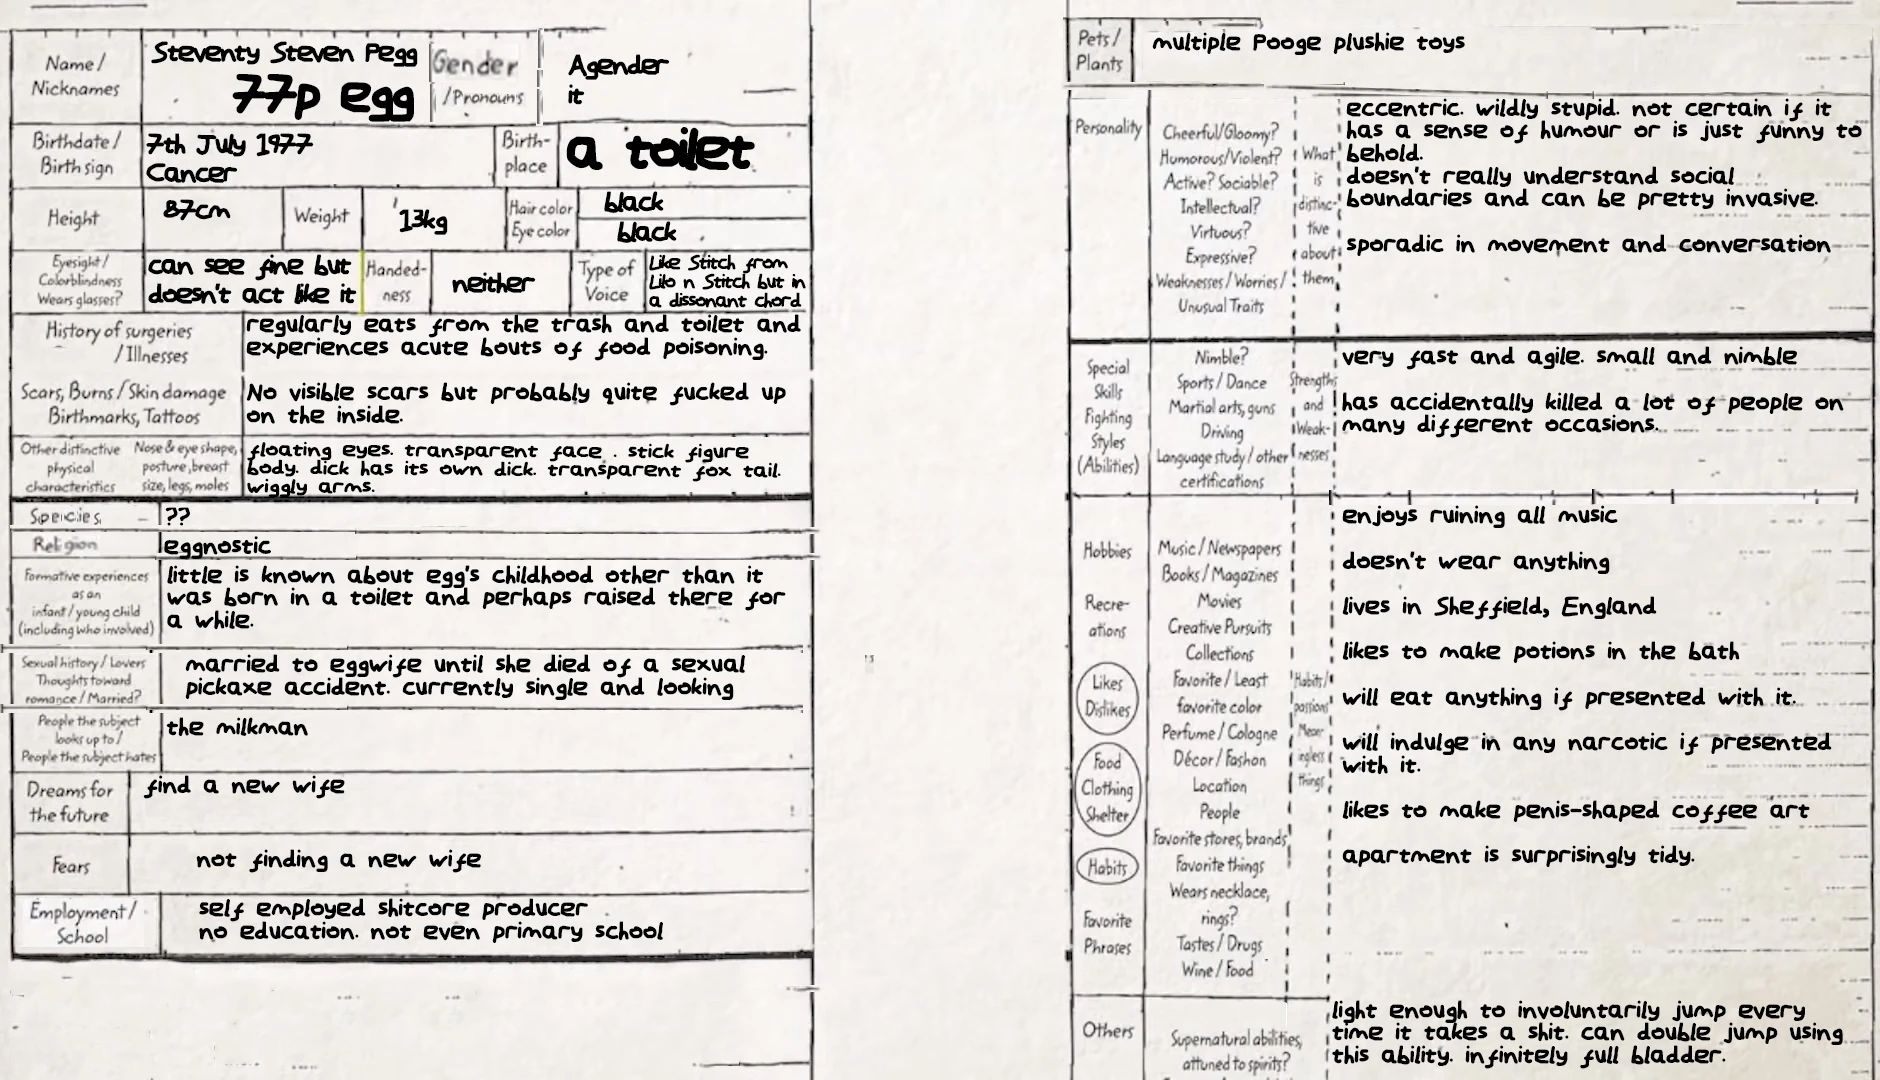 Name/
Nicknames
Steventy Steven Pegg
77p egg
Gender
/Pronouns
Agender
it
Birthdate/
Birth sign
7th July 1977
Cancer
Birth-
place
a toilet
Height
87cm
Weight
13kg
Hair color
Eye color
black
black
Eyesight/
Colorblindness
Wears glasses?
can see fine but
doesn't act like it
Handed-
ness
neither
Type of
Voice
Like Stitch from
Lilo n Stitch but in
a dissonant chord
History of surgeries
/Illnesses
regularly eats from the trash and toilet and
experiences acute bouts of food poisoning.
Scars, Burns/Skin damage
Birthmarks, Tattoos
No visible scars but probably quite fucked up
on the inside.
Other distinctive
physical
characteristics
Nose & eye shape,
posture, breast
size, legs, moles
floating eyes. transparent face . stick figure
body. dick has its own dick. transparent fox tail.
wiggly arms.
Species
??
Religion
eggnostic
Formative experiences
as an
infant/young child
(including who involved)
little is known about egg's childhood other than it
was born in a toilet and perhaps raised there for
a while.
Sexual history/Lovers
Thoughts toward
romance/Married?
married to eggwife until she died of a sexual
pickaxe accident. currently single and looking
People the subject
looks up to/
People the subject hates
the milkman
Dreams for
the future
find a new wife
Fears
not finding a new wife
Employment/
School
self employed shitcore producer
no education. not even primary school
Pets/
Plants
multiple Pooge plushie toys
Personality
Cheerful/Gloomy?
Humorous/Violent?
Active? Sociable?
Intellectual?
Virtuous?
Expressive?
Weaknesses/Worries/
Unusual Traits
What
is
distinc-
tive
about
them
eccentric. wildly stupid. not certain if it
has a sense of humour or is just funny to
behold.
doesn't really understand social
boundaries and can be pretty invasive.
sporadic in movement and conversation
Special
Skills
Fighting
Styles
(Abilities)
Nimble?
Sports/Dance
Martial arts, guns
Driving
Language study/other
certifications
Strengths
and
Weak-
nesses
very fast and agile. small and nimble
has accidentally killed a lot of people on
many different occasions.
Hobbies
Recre-
ations
Likes
Dislikes
Food
Clothing
Shelter
Habits
Favorite
Phrases
Music/Newspapers
Books/Magazines
Movies
Creative Pursuits
Collections
Favorite/Least
favorite color
Perfume/Cologne
Décor/Fashon
Location
People
Favorite stores, brands
Favorite things
Wears necklace,
rings?
Tastes/Drugs
Wine/Food
Habits/
passions
Mean-
ingless
things
enjoys ruining all music
doesn't wear anything
lives in Sheffield, England
likes to make potions in the bath
will eat anything if presented with it.
will indulge in any narcotic if presented
with it.
likes to make penis-shaped coffee art
apartment is surprisingly tidy.
Others
Supernatural abilities,
attuned to spirits?
light enough to involuntarily jump every
time it takes a shit. can double jump using
this ability. infinitely full bladder.